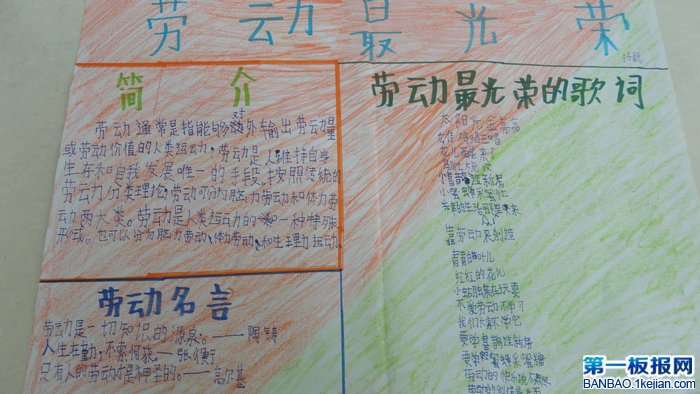 劳动最光荣
简介
劳动通常是指能够对外输出劳动量
或劳动价值的人类运动，劳动是人维持自身
生存和自我发展唯一的手段。按照传统的
劳动力分类理论，劳动可分为脑力劳动和体力劳
动两大类。劳动是人类运动的一种特殊
形式。也可以分为脑力劳动、体力劳动、和生理力运动。
劳动名言
劳动是一切知识的源泉。——陶铸
人生在勤，不索何获——张衡
只有人的劳动才是神圣的。——高尔基
劳动最光荣的歌词
太阳光金亮亮
雄鸡唱三唱
花儿醒来了
靠劳动来创造
青青的叶儿
红红的花儿
小蝴蝶贪玩耍
不爱劳动不学习
我们大家不学它
要学喜鹊造新房
要学蜜蜂采蜜糖
劳动的快乐说不尽
劳动的创造最光荣
第一板报网
BANBAO.1kejian.com